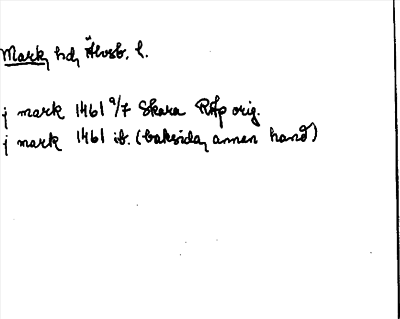 Mark, hd, Älvsb. l.
j mark 1461 9/7 Skara RAp orig.
j mark 1461 ib. (baksida, annan hand)